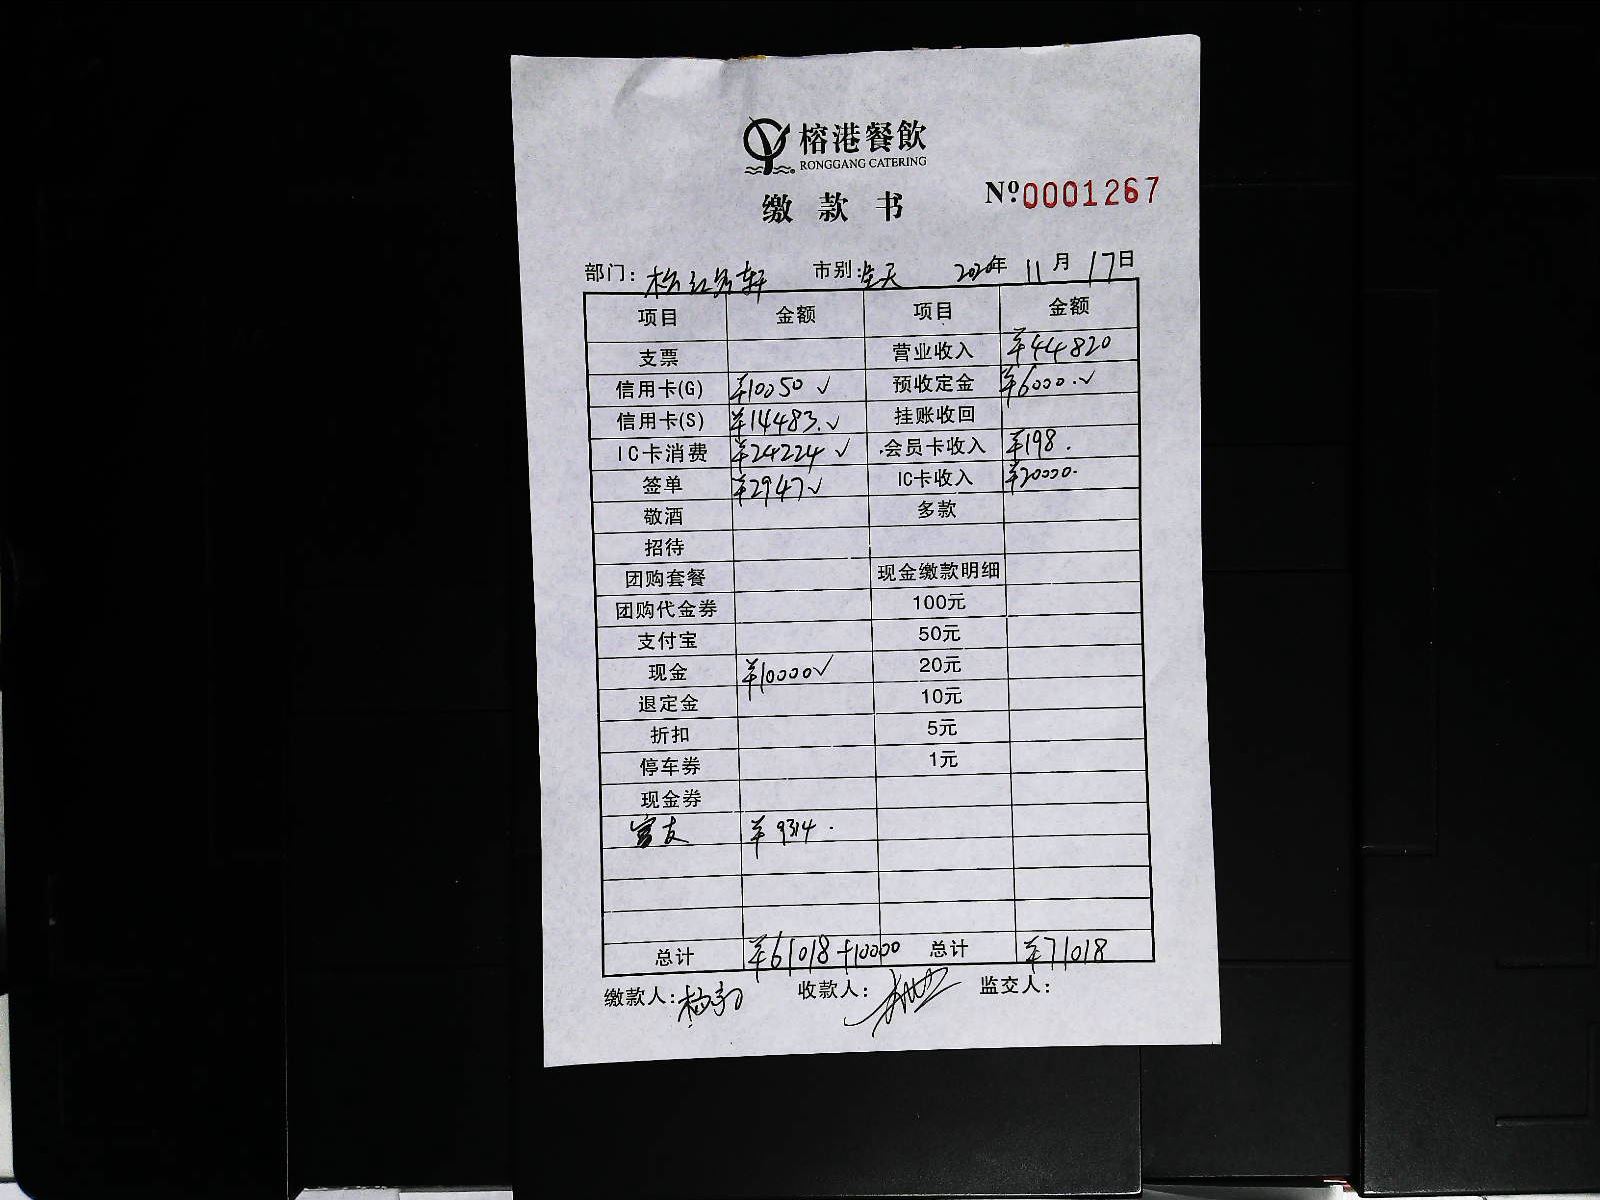 榕港餐飲
RONGGANG CATERING
缴款书 Nº0001267
部门: 市别:全天 2020年 11月 17日
项目 金额 项目 金额
支票 营业收入 ¥44820
信用卡(G) ¥10050 ✓ 预收定金 ¥6000. ✓
信用卡(S) ¥14483. ✓ 挂账收回
IC卡消费 ¥24224 ✓ 会员卡收入 ¥198.
签单 ¥2947 ✓ IC卡收入 ¥20000.
敬酒 多款
招待
团购套餐 现金缴款明细
团购代金券 100元
支付宝 50元
现金 ¥10000 ✓ 20元
退定金 10元
折扣 5元
停车券 1元
现金券
¥9314.
总计 ¥61018+10000 总计 ¥71018
缴款人: 收款人: 监交人: